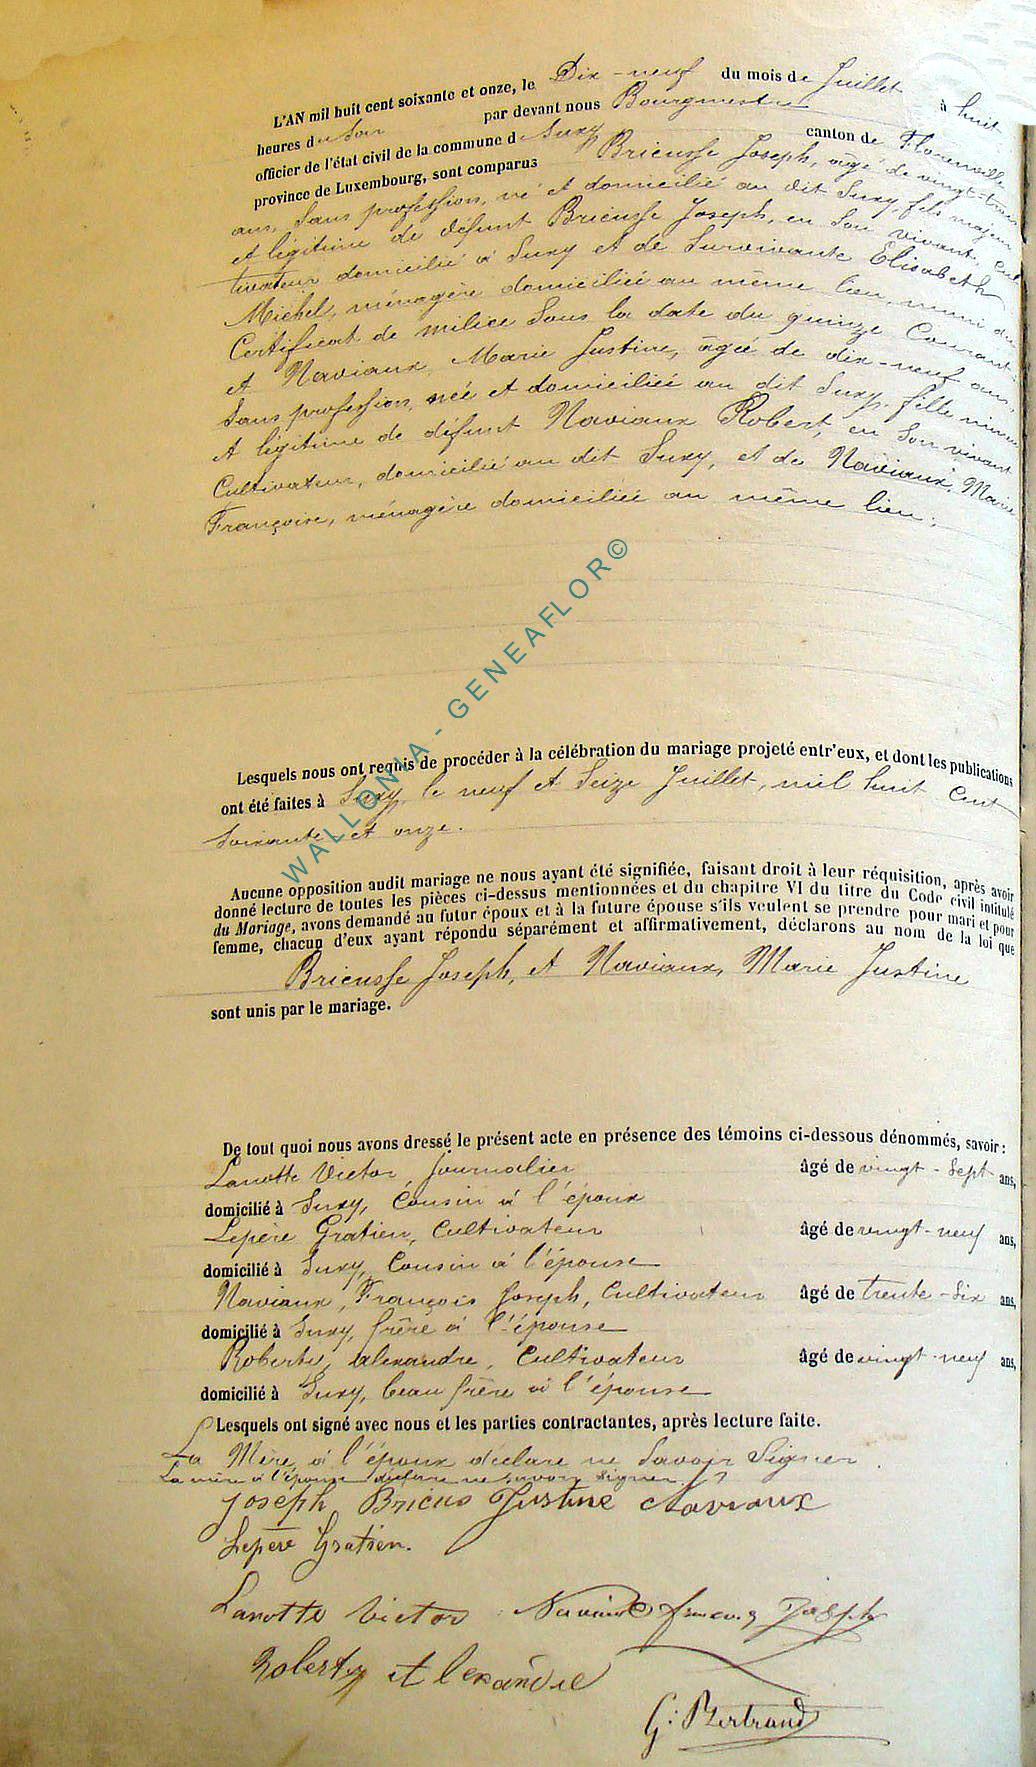 L'AN mil huit cent soixante et onze, le Dix-neuf du mois de Juillet à huit
heures du Soir par devant nous Bourgmestre
officier de l'état civil de la commune d Suxy canton de Florenville
province de Luxembourg, sont comparus Brieusse Joseph, âgé de vingt-trois
ans, Sans profession, né et domicilié au dit Suxy, fils majeur
et légitime de défunt Brieusse Joseph, en Son vivant, Cul
tivateur domicilié à Suxy et de Survivante Elisabeth
Michel, ménagère domiciliée au même lieu, muni du
Certificat de milice Sous la date du quinze Courant
et Naviaux Marie Justine, âgée de dix-neuf ans,
Sans profession, née et domiciliée au dit Suxy, fille mineure
et légitime de défunt Naviaux Robert, en Son vivant
Cultivateur, domicilié au dit Suxy, et de Naviaux, Marie
Françoise, ménagère domiciliée au même lieu;
WALLONIA - GENEAFLOR©
Lesquels nous ont requis de procéder à la célébration du mariage projeté entr'eux, et dont les publications
ont été faites à Suxy, le neuf et Seize Juillet, mil huit Cent
Soixante et onze.
Aucune opposition audit mariage ne nous ayant été signifiée, faisant droit à leur réquisition, après avoir
donné lecture de toutes les pièces ci-dessus mentionnées et du chapitre VI du titre du Code civil intitulé
du Mariage, avons demandé au futur époux et à la future épouse s'ils veulent se prendre pour mari et pour
femme, chacun d'eux ayant répondu séparément et affirmativement, déclarons au nom de la loi que
Brieusse Joseph, et Naviaux, Marie Justine
sont unis par le mariage.
De tout quoi nous avons dressé le présent acte en présence des témoins ci-dessous dénommés, savoir :
Lanotte Victor, Journalier âgé de vingt-Sept ans,
domicilié à Suxy, Cousin à l'époux
Lepère Gratien, Cultivateur âgé de vingt-neuf ans,
domicilié à Suxy, Cousin à l'épouse
Naviaux, François Joseph, Cultivateur âgé de trente-Six ans,
domicilié à Suxy, frère à l'épouse
Roberty, alexandre, Cultivateur âgé de vingt-neuf ans,
domicilié à Suxy, beau frère à l'épouse
Lesquels ont signé avec nous et les parties contractantes, après lecture faite.
La Mère à l'époux déclare ne Savoir Signer.
La mère à l'épouse déclare ne savoir signer
Joseph Bricus Justine Naviaux
Lepère Gratien.
Lanotte Victor Naviaux Joseph
Roberty Alexandre
G. Bertrand